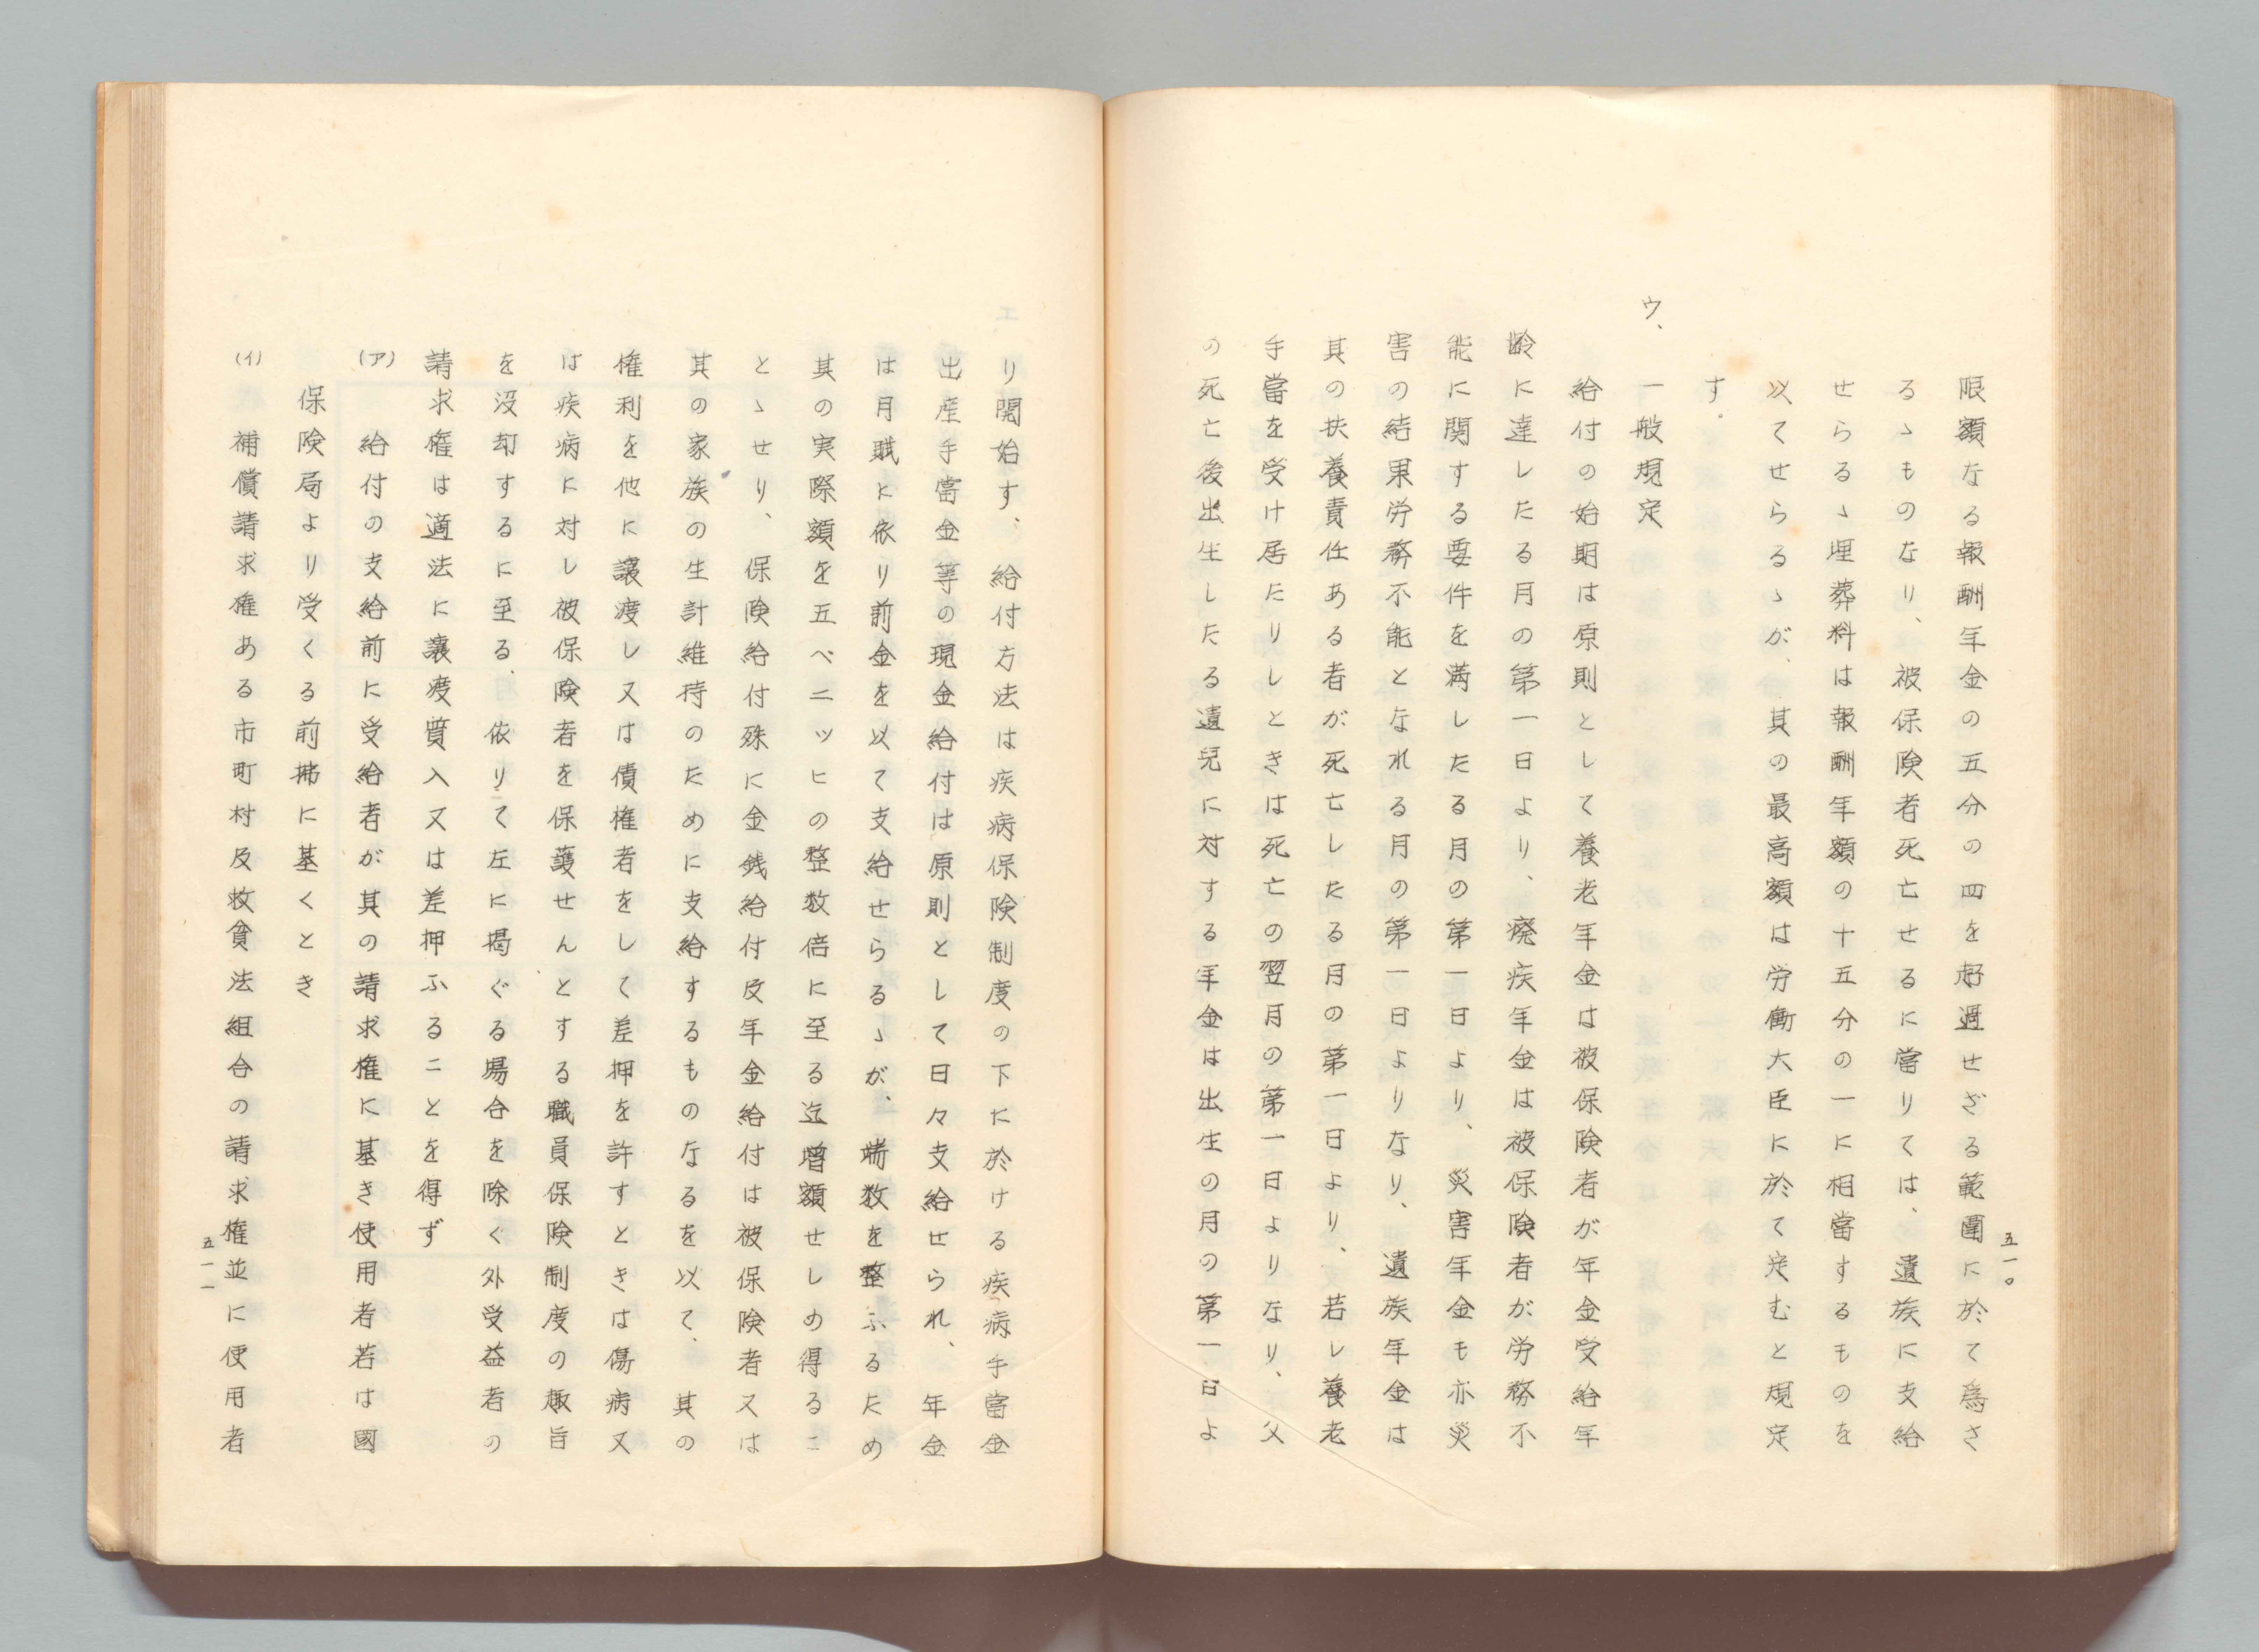 限額なる報酬年金の五分の四を超過せざる範囲に於て為さ
るゝものなり、被保険者死亡せるに當りては、遺族に支給
せらるゝ埋葬料は報酬年額の十五分の一に相當するものを
以てせらるゝが、其の最高額は労働大臣に於て定むと規定
す。
ウ、
一般規定
給付の始期は原則として養老年金は被保険者が年金受給年
齢に達したる月の第一日より、廃疾年金は被保険者が労務不
能に関する要件を満したる月の第一日より、災害年金も亦災
害の結果労務不能となれる月の第一日よりなり、遺族年金は
其の扶養責任ある者が死亡したる月の第一日より、若し養老
手當を受け居たりしときは死亡の翌月の第一日よりなり、父
の死亡後出生したる遺児に対する年金は出生の月の第一日よ
五一〇
り開始す、給付方法は疾病保険制度の下に於ける疾病手當金
出産手當金等の現金給付は原則として日々支給せられ、年金
は月賦に依り前金を以て支給せらるゝが、端数を整ふるため
其の実際額を五ペニッヒの整数倍に至る迄増額せしめ得るこ
とゝせり、保険給付殊に金銭給付及年金給付は被保険者又は
其の家族の生計維持のために支給するものなるを以て、其の
権利を他に譲渡し又は債権者をして差押を許すときは傷病又
は疾病に対し被保険者を保護せんとする職員保険制度の趣旨
を没却するに至る、依りて左に掲ぐる場合を除く外受益者の
請求権は適法に譲渡質入又は差押ふることを得ず
(ア) 給付の支給前に受給者が其の請求権に基き使用者若は國
保険局より受くる前拂に基くとき
(イ) 補償請求権ある市町村及救貧法組合の請求権並に使用者
五一一